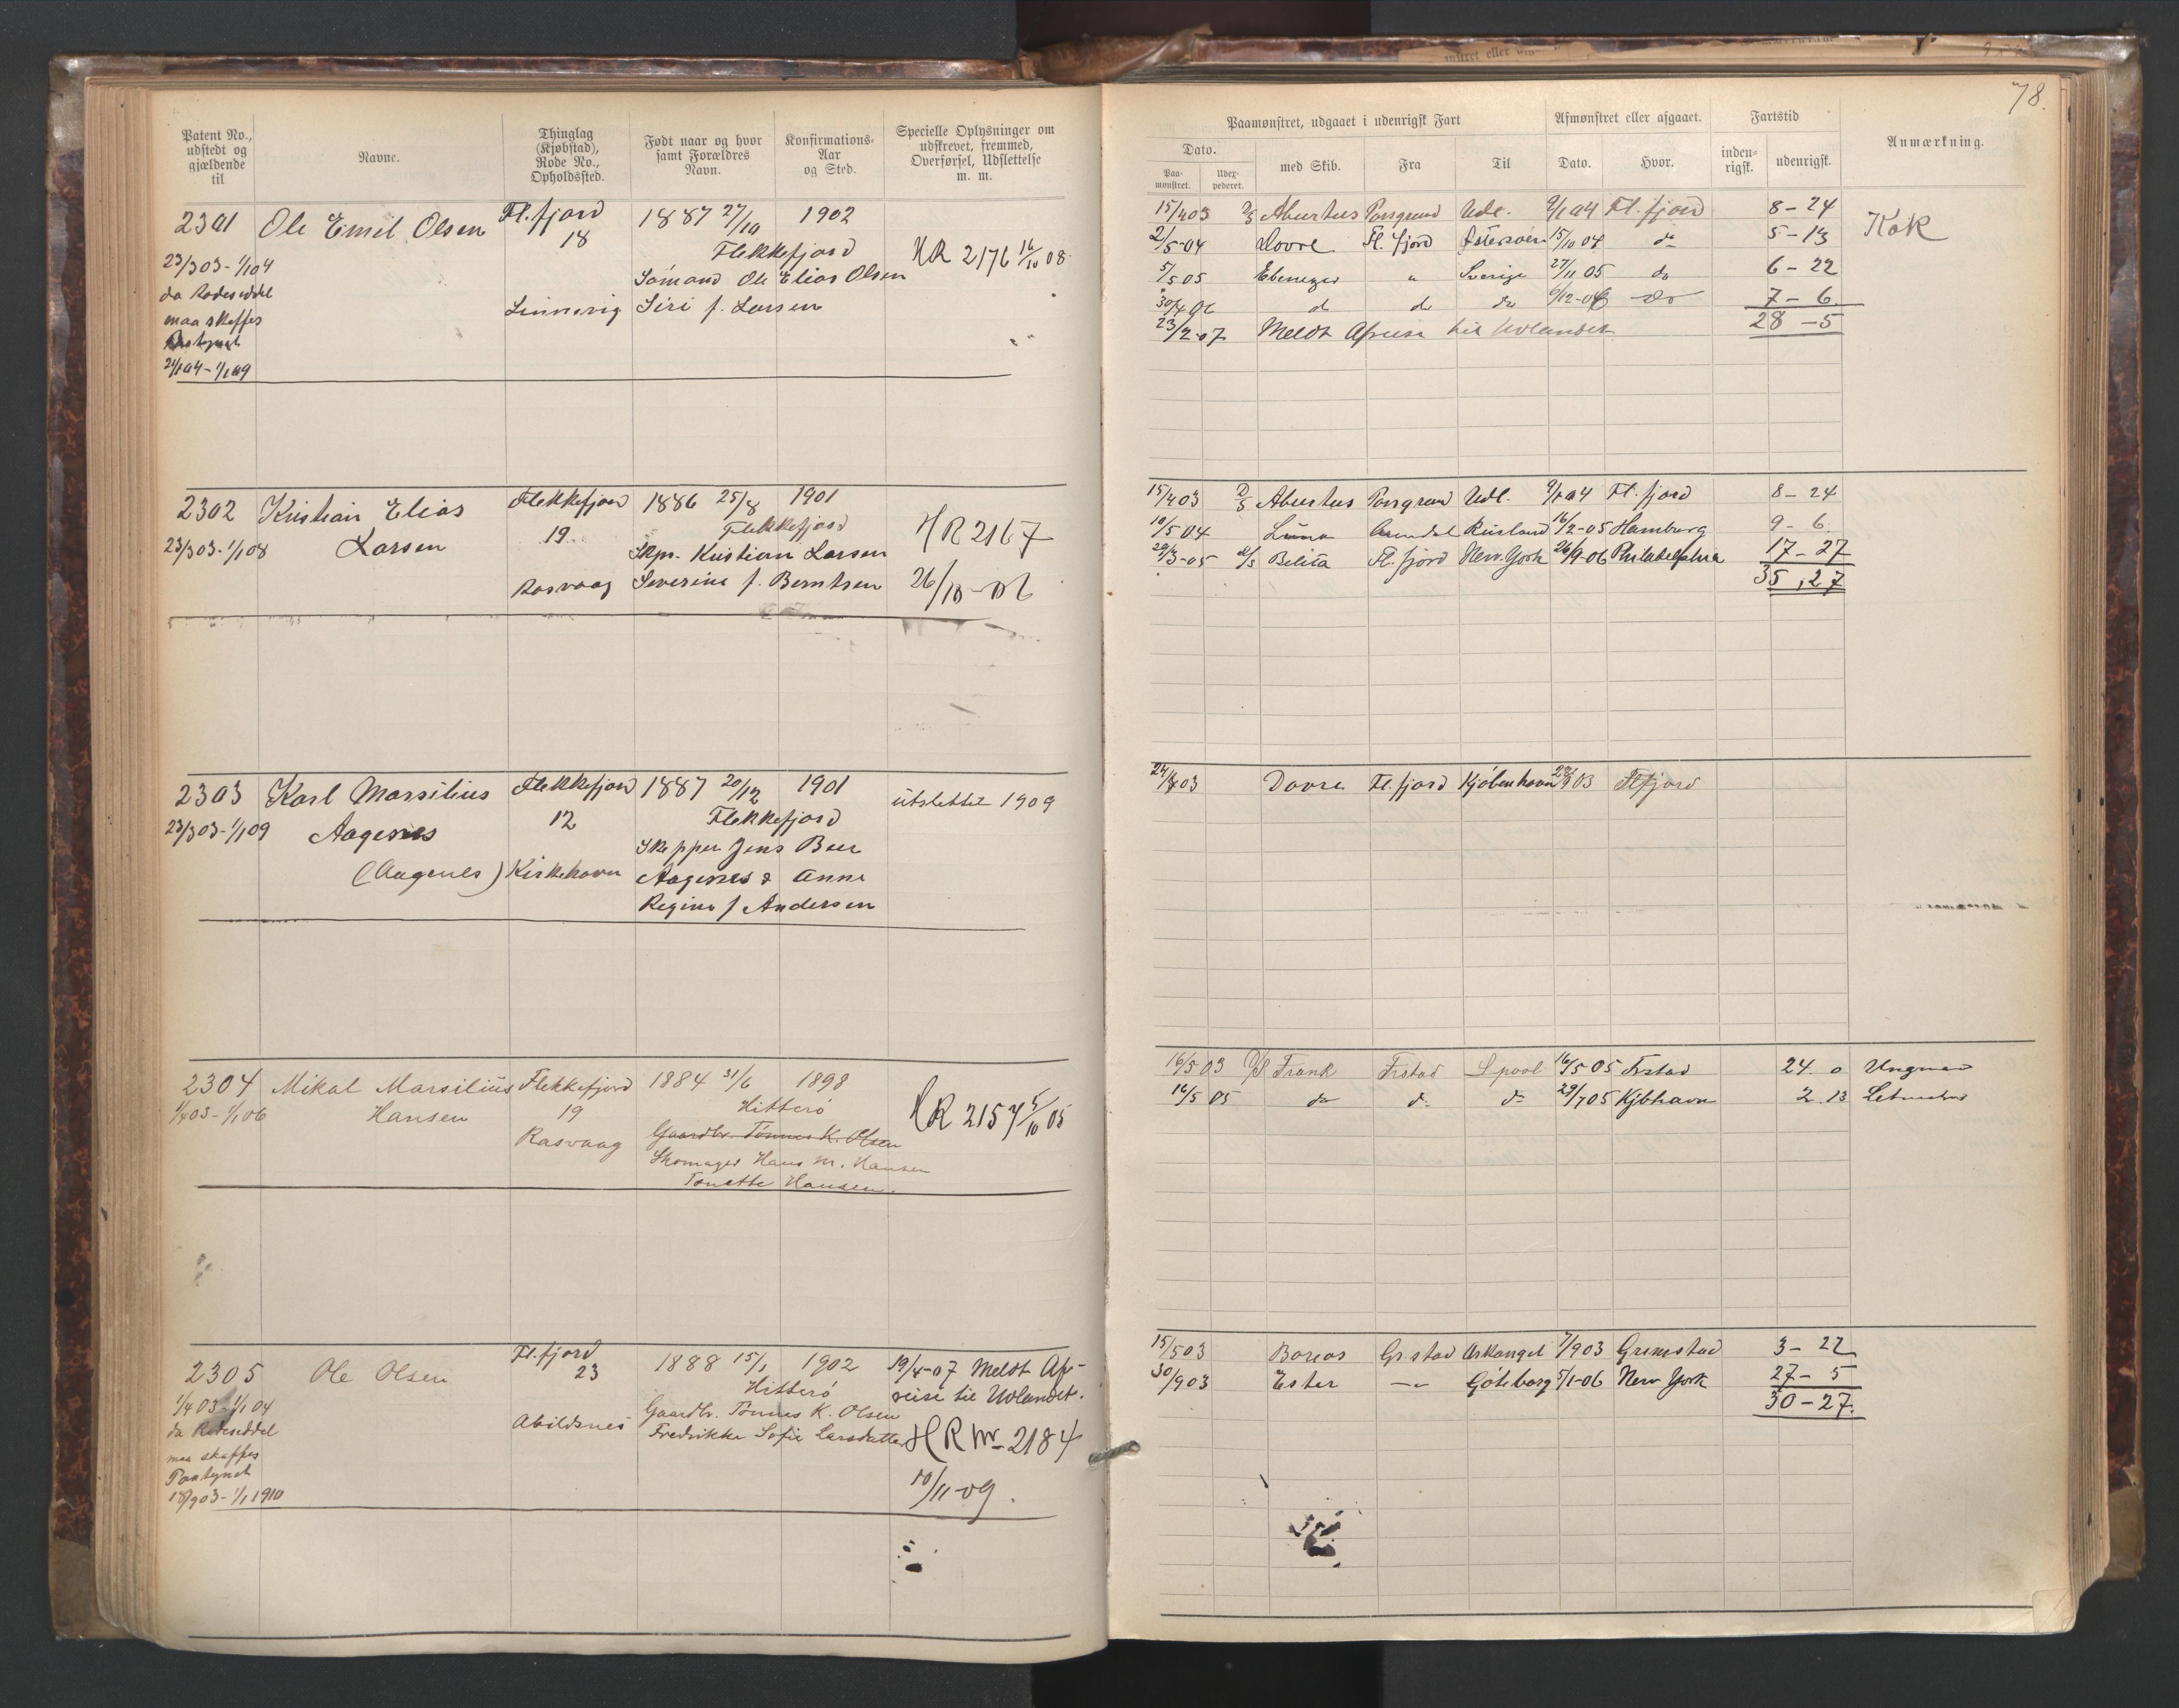 78.
Patent No., udstedt og gjældende til
Navne.
Thinglag (Kjøbstad), Rode No., Opholdssted.
Født naar og hvor samt Forældres Navn.
Konfirmations-Aar og Sted.
Specielle Oplysninger om udskrevet, fremmed, Overførsel, Udslettelse m. m.
Paamønstret, udgaaet i udenrigsk Fart
Afmønstret eller afgaaet.
Fartstid
Anmærkning.
Dato.
Paa-mønstret.
Udex-pederet.
med Skib.
Fra
Til
Dato.
Hvor.
inden-rigsk.
udenrigsk.
2301 Ole Emil Olsen Fl.fjord 1887 27/10 1902
18 Flekkefjord HR 2176 16/10 08
23/3 03 - 1/1 04 Sømand Ole Elias Olsen
da Rodeseddel Linnevig Siri f. Larsen
maa skaffes
21/1 04 - 1/1 09
15/4 03 D/S Aburtus Porsgrund Udl. 9/1 04 Fl. fjord 8 - 24 Kok
2/5-04 Dovre Fl. fjord Østersøen 15/10 04 do 5 - 13
5/5 05 Ebenezer " Sverige 27/11 05 do 6 - 22
30/4 06 do do do 6/12-06 do 7 - 6
23/2-07 Meldt Afreise til Udlandet 28 - 5
2302 Kristian Elias Flekkefjord 1886 25/8 1901
23/3 03 - 1/1 08 Larsen 19 Flekkefjord HR 2167
Skpr. Kristian Larsen
Rasvaag Severine f. Berntsen 26/10-06
15/4 03 D/S Aburtus Porsgrund Udl. 9/1 04 Fl. fjord 8 - 24
10/5 04 Luna Arendal Rusland 16/2-05 Hamburg 9 - 6
29/3-05 D/S Belita Fl. fjord New York 26/9-06 Philadelphia 17 - 27
35,27
2303 Karl Marsilius Flekkefjord 1887 20/12 1901 utslettet 1909
23/3 03 - 1/1 09 Aagenes 12 Flekkefjord
Skipper Jens Beer
(Aagenes) Kirkehavn Aagenes & Anne
Regine f Andersen
24/4 03 Dovre Fl. fjord Kjøbenhavn Flfjord
2304 Mikal Marsilius Flekkefjord 1884 31/6 1898
1/4 03 - 1/1 06 Hansen 19 Hitterø HR 2157 5/10 05
Rasvaag Gaardbr. Tønnes K. Olsen
Skomager Hans M. Hansen
Tonette Hansen.
16/5 03 D/S Frank Frstad Lpool 16/5 05 Frstad 24. 0 Ungmand
16/5 05 do do do 29/7 05 Kjbhavn 2. 13 Letmatros
2305 Ole Olsen Fl.fjord 1888 15/1 1902 19/4-07 Meldt Af-
23 Hitterø reise til Udlandet.
1/4 03 - 1/1 04 Gaardbr. Tønnes K. Olsen
da Rodeseddel Abildsnes Fredrikke Sofie Larsdatter HR Nr 2184
maa skaffes
Fontynet 10/11-09.
18/9 03 - 1/1 1910
15/5 03 Boreas Gr.stad Arkangel 7/9 03 Grimstad 3 - 22
30/9 03 Ester -"- Göteborg 5/1-06 New York 27 - 5
30 - 27.